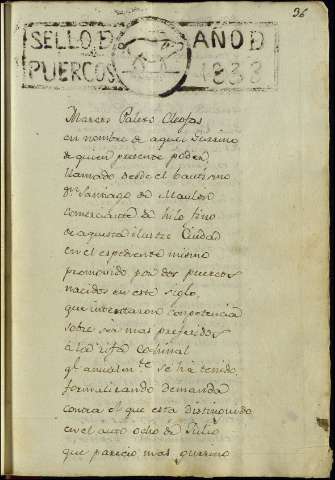 36
SELLO D AÑO D
PUERCOS 1838
Marcos Palero Cleofas
en nombre de aquel Gurrino
de quien presente poder,
llamado desde el bautismo
Dn Santiago de Mauleon
comerciante de hilo fino
de aquesta ilustre Ciudad
en el espediente mismo
promovido por dos puercos
nacidos en este siglo,
que intentaron conpetencia
sobre ser mas preferidos
á la rifa cochinal
ql anualmte se ha tenido,
formalizando demanda
contra el que esta distinguido
en el auto ocho de Julio
que parecio mas gurrino